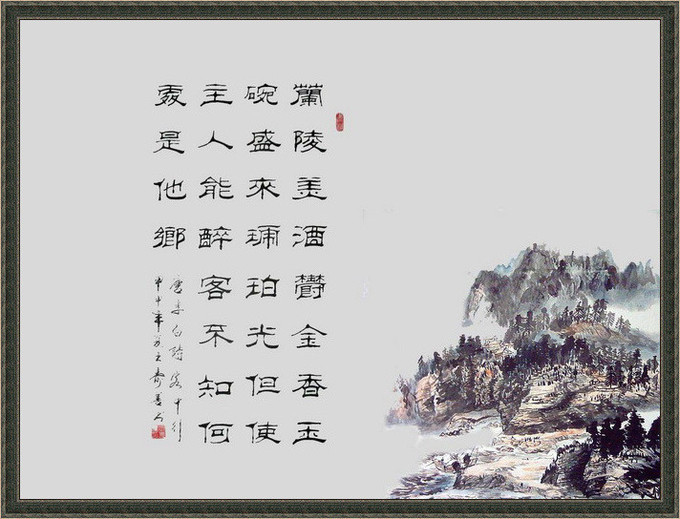 蘭陵美酒欝金香玉
碗盛來琥珀光但使
主人能醉客不知何
處是他鄉
唐李白詩客中行
甲申年夏